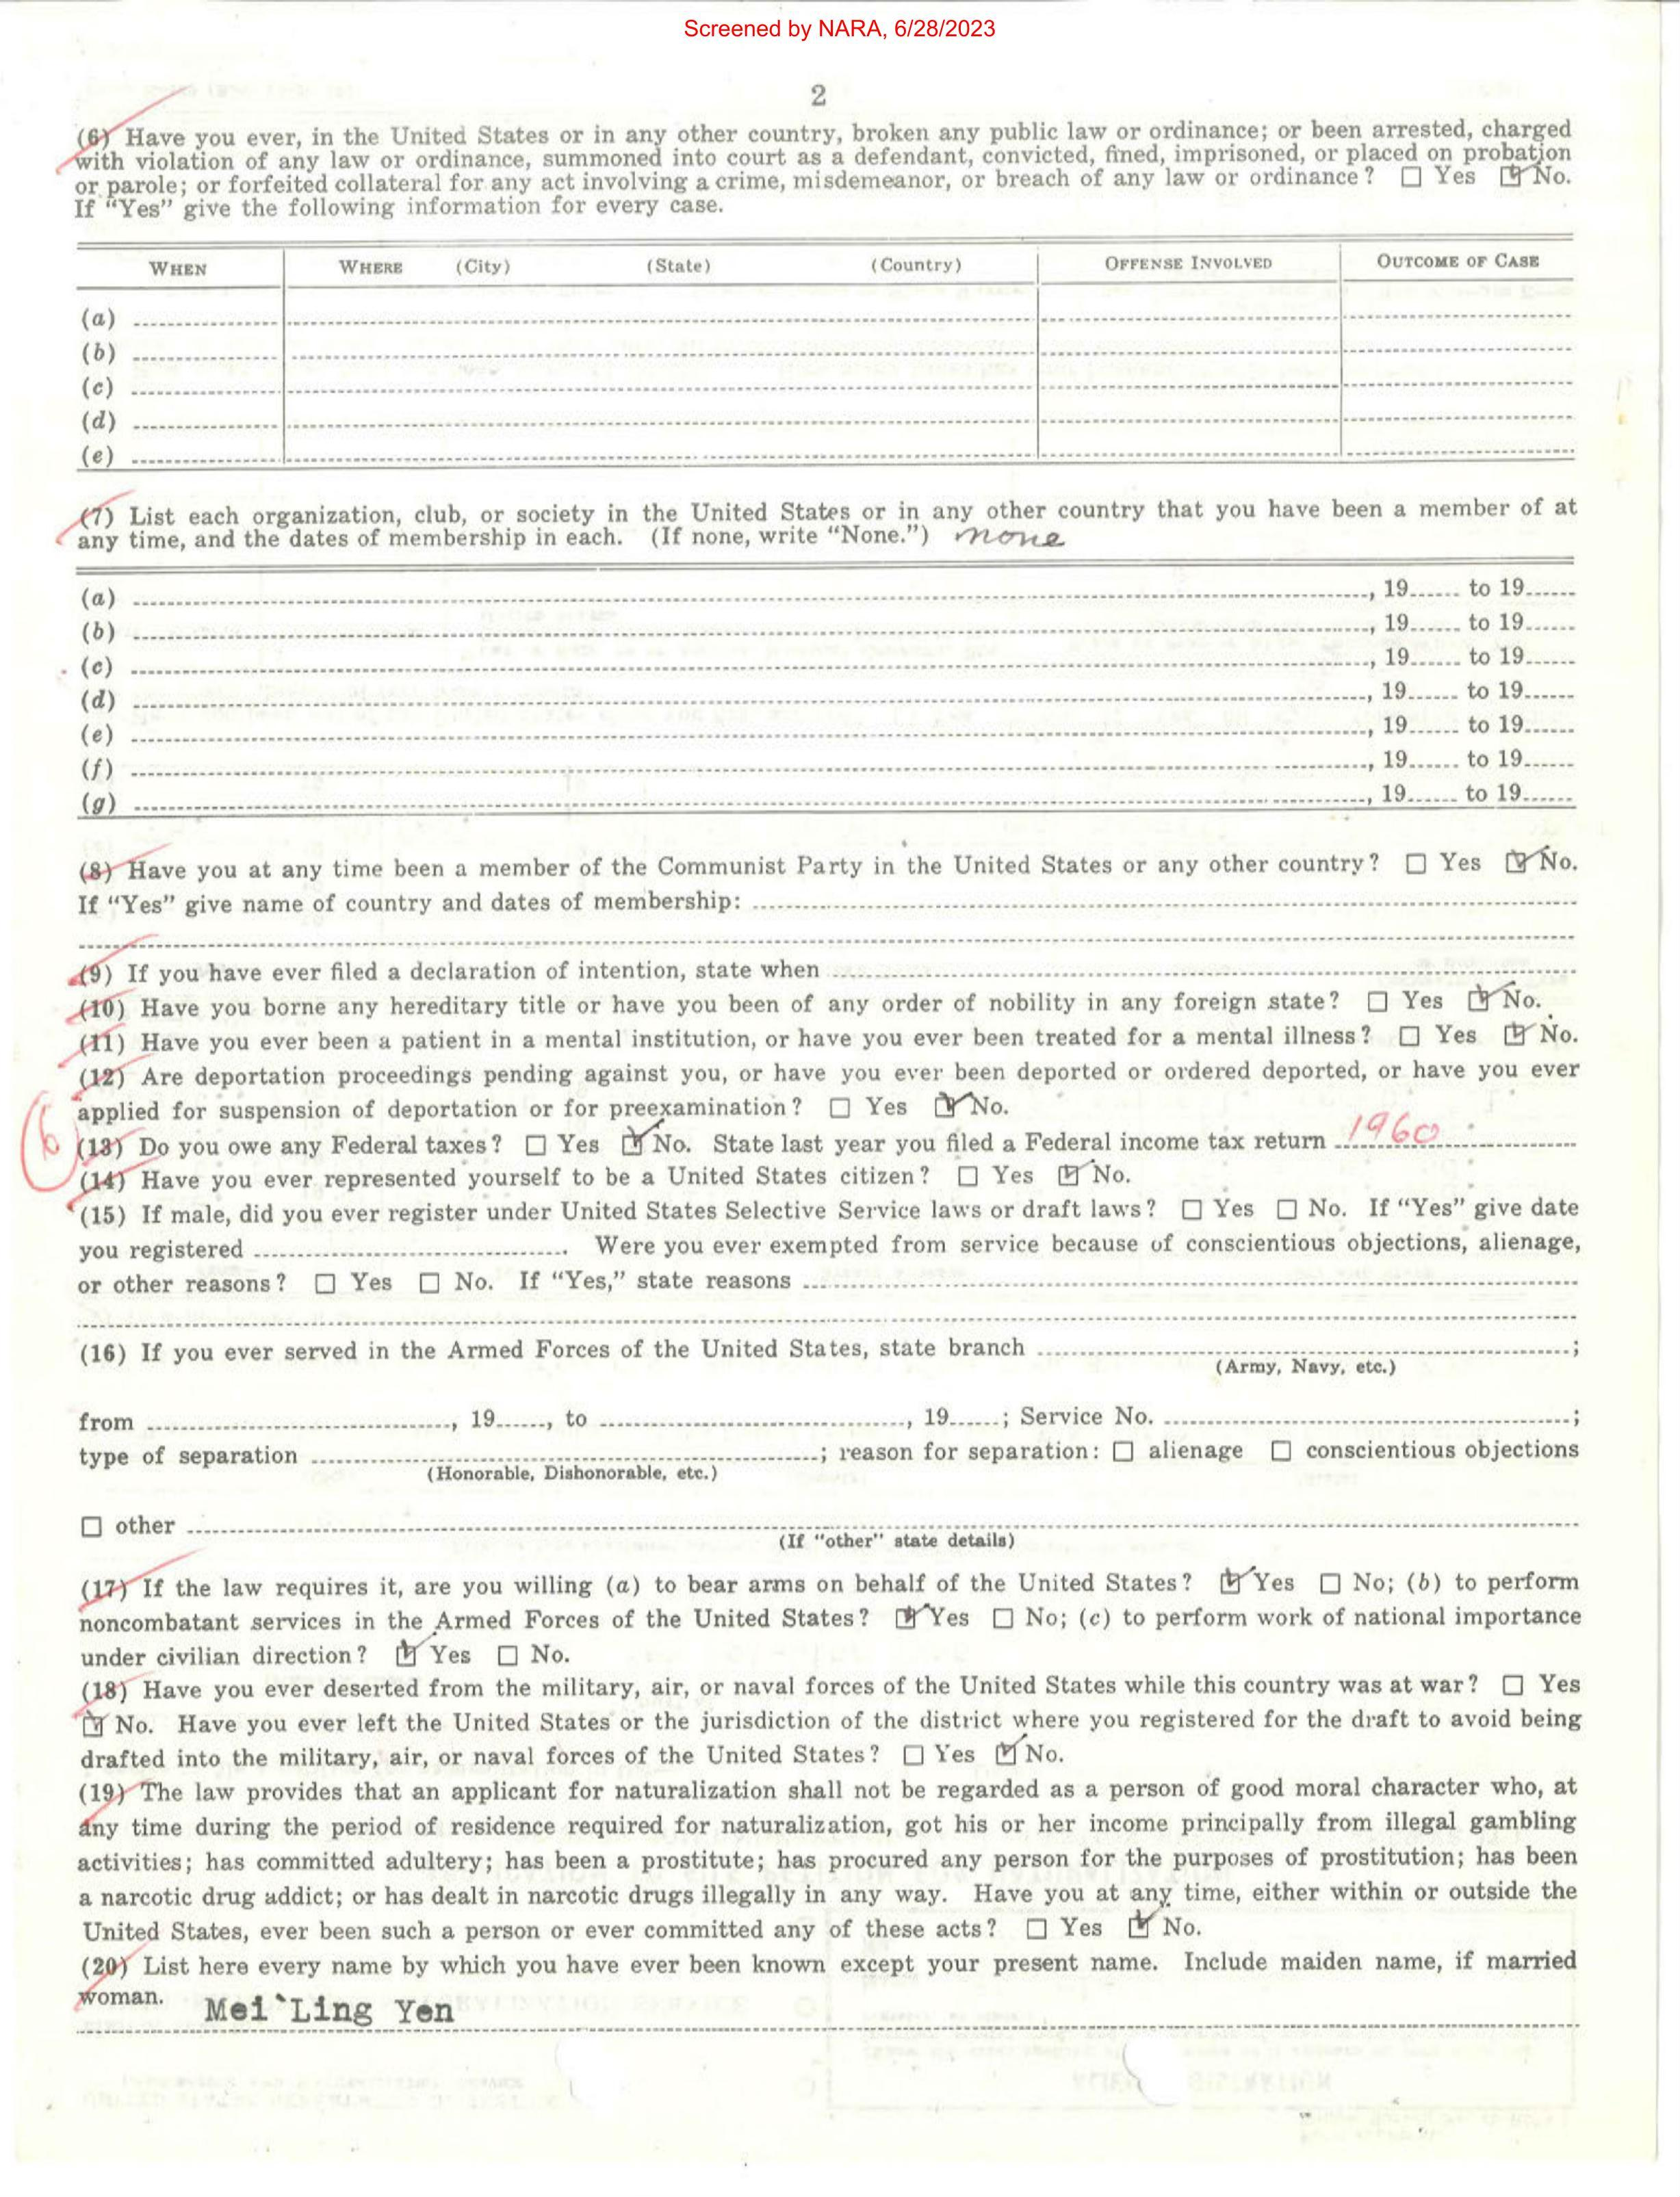 Screened by NARA, 6/28/2023
2
(6) Have you ever, in the United States or in any other country, broken any public law or ordinance; or been arrested, charged
with violation of any law or ordinance, summoned into court as a defendant, convicted, fined, imprisoned, or placed on probation
or parole; or forfeited collateral for any act involving a crime, misdemeanor, or breach of any law or ordinance? ☐ Yes ☑ No.
If "Yes" give the following information for every case.
WHEN WHERE (City) (State) (Country) OFFENSE INVOLVED OUTCOME OF CASE
(a)
(b)
(c)
(d)
(e)
(7) List each organization, club, or society in the United States or in any other country that you have been a member of at
any time, and the dates of membership in each. (If none, write "None.") none
(a) , 19 to 19
(b) , 19 to 19
(c) , 19 to 19
(d) , 19 to 19
(e) , 19 to 19
(f) , 19 to 19
(g) , 19 to 19
(8) Have you at any time been a member of the Communist Party in the United States or any other country? ☐ Yes ☑ No.
If "Yes" give name of country and dates of membership:
(9) If you have ever filed a declaration of intention, state when
(10) Have you borne any hereditary title or have you been of any order of nobility in any foreign state? ☐ Yes ☑ No.
(11) Have you ever been a patient in a mental institution, or have you ever been treated for a mental illness? ☐ Yes ☑ No.
(12) Are deportation proceedings pending against you, or have you ever been deported or ordered deported, or have you ever
applied for suspension of deportation or for preexamination? ☐ Yes ☑ No.
6 (13) Do you owe any Federal taxes? ☐ Yes ☑ No. State last year you filed a Federal income tax return 1960
(14) Have you ever represented yourself to be a United States citizen? ☐ Yes ☑ No.
(15) If male, did you ever register under United States Selective Service laws or draft laws? ☐ Yes ☐ No. If "Yes" give date
you registered . Were you ever exempted from service because of conscientious objections, alienage,
or other reasons? ☐ Yes ☐ No. If "Yes," state reasons
(16) If you ever served in the Armed Forces of the United States, state branch ;
(Army, Navy, etc.)
from , 19 , to , 19 ; Service No. ;
type of separation ; reason for separation: ☐ alienage ☐ conscientious objections
(Honorable, Dishonorable, etc.)
☐ other
(If "other" state details)
(17) If the law requires it, are you willing (a) to bear arms on behalf of the United States? ☑ Yes ☐ No; (b) to perform
noncombatant services in the Armed Forces of the United States? ☑ Yes ☐ No; (c) to perform work of national importance
under civilian direction? ☑ Yes ☐ No.
(18) Have you ever deserted from the military, air, or naval forces of the United States while this country was at war? ☐ Yes
☑ No. Have you ever left the United States or the jurisdiction of the district where you registered for the draft to avoid being
drafted into the military, air, or naval forces of the United States? ☐ Yes ☑ No.
(19) The law provides that an applicant for naturalization shall not be regarded as a person of good moral character who, at
any time during the period of residence required for naturalization, got his or her income principally from illegal gambling
activities; has committed adultery; has been a prostitute; has procured any person for the purposes of prostitution; has been
a narcotic drug addict; or has dealt in narcotic drugs illegally in any way. Have you at any time, either within or outside the
United States, ever been such a person or ever committed any of these acts? ☐ Yes ☑ No.
(20) List here every name by which you have ever been known except your present name. Include maiden name, if married
woman. Mei`Ling Yen